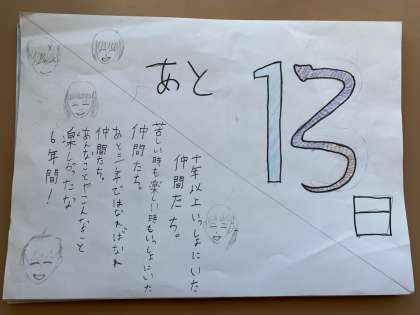 あと
13
日
十年以上いっしょにいた
仲間たち。
苦しい時も楽しい時もいっしょにいた
仲間たち。
あと三年ではなればなれ
仲間たち。
あんなことやこんなこと
楽しかったな
6年間!